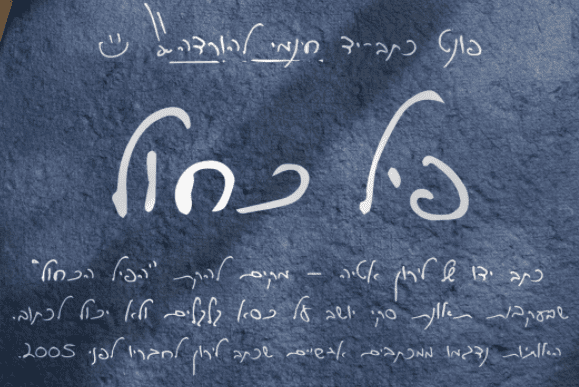 פונט כתב-יד חינמי להורדה!! :)
פיל כחול
כתב ידו של לירון אטיה – מקים להקת "הפיל הכחול"
שבעקבות תאונת סקי יושב על כסא גלגלים ולא יכול לכתוב.
האותיות נדגמו ממכתבים אישיים שכתב לירון לחבריו לפני 2005.